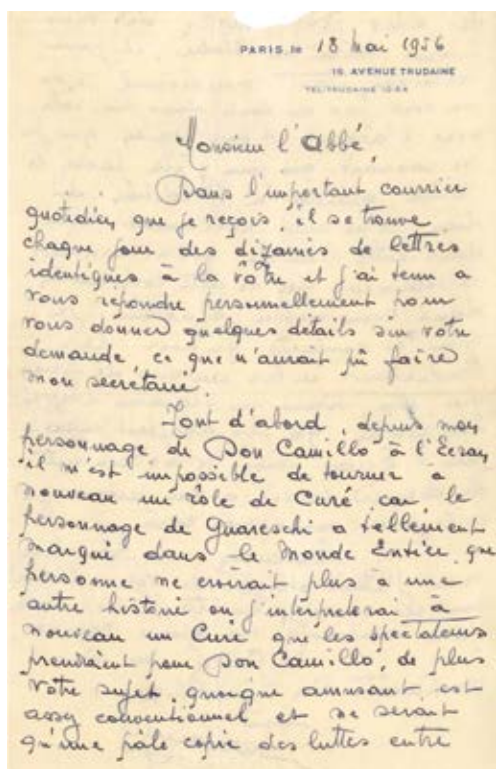 PARIS, le 18 Mai 1956
16, AVENUE TRUDAINE
TEL: TRUDAINE
Monsieur l'Abbé,
Dans l'important courrier
quotidien que je reçois, il se trouve
chaque jour des dizaines de lettres
identiques à la vôtre et j'ai tenu a
vous répondre personnellement pour
vous donner quelques détails sur votre
demande, ce que n'aurait pû faire
mon secrétaire.
Tout d'abord, depuis mon
personnage de Don Camillo à l'Ecran,
il m'est impossible de tourner à
nouveau un rôle de Curé car le
personnage de Guareschi a tellement
marqué dans le Monde Entier que
personne ne croirait plus à une
autre histoire ou j'interpreterai à
nouveau un Curé que les spectateurs
prendraient pour Don Camillo, de plus
votre sujet, quoique amusant, est
assez conventionnel et ne serait
qu'une pâle copie des luttes entre